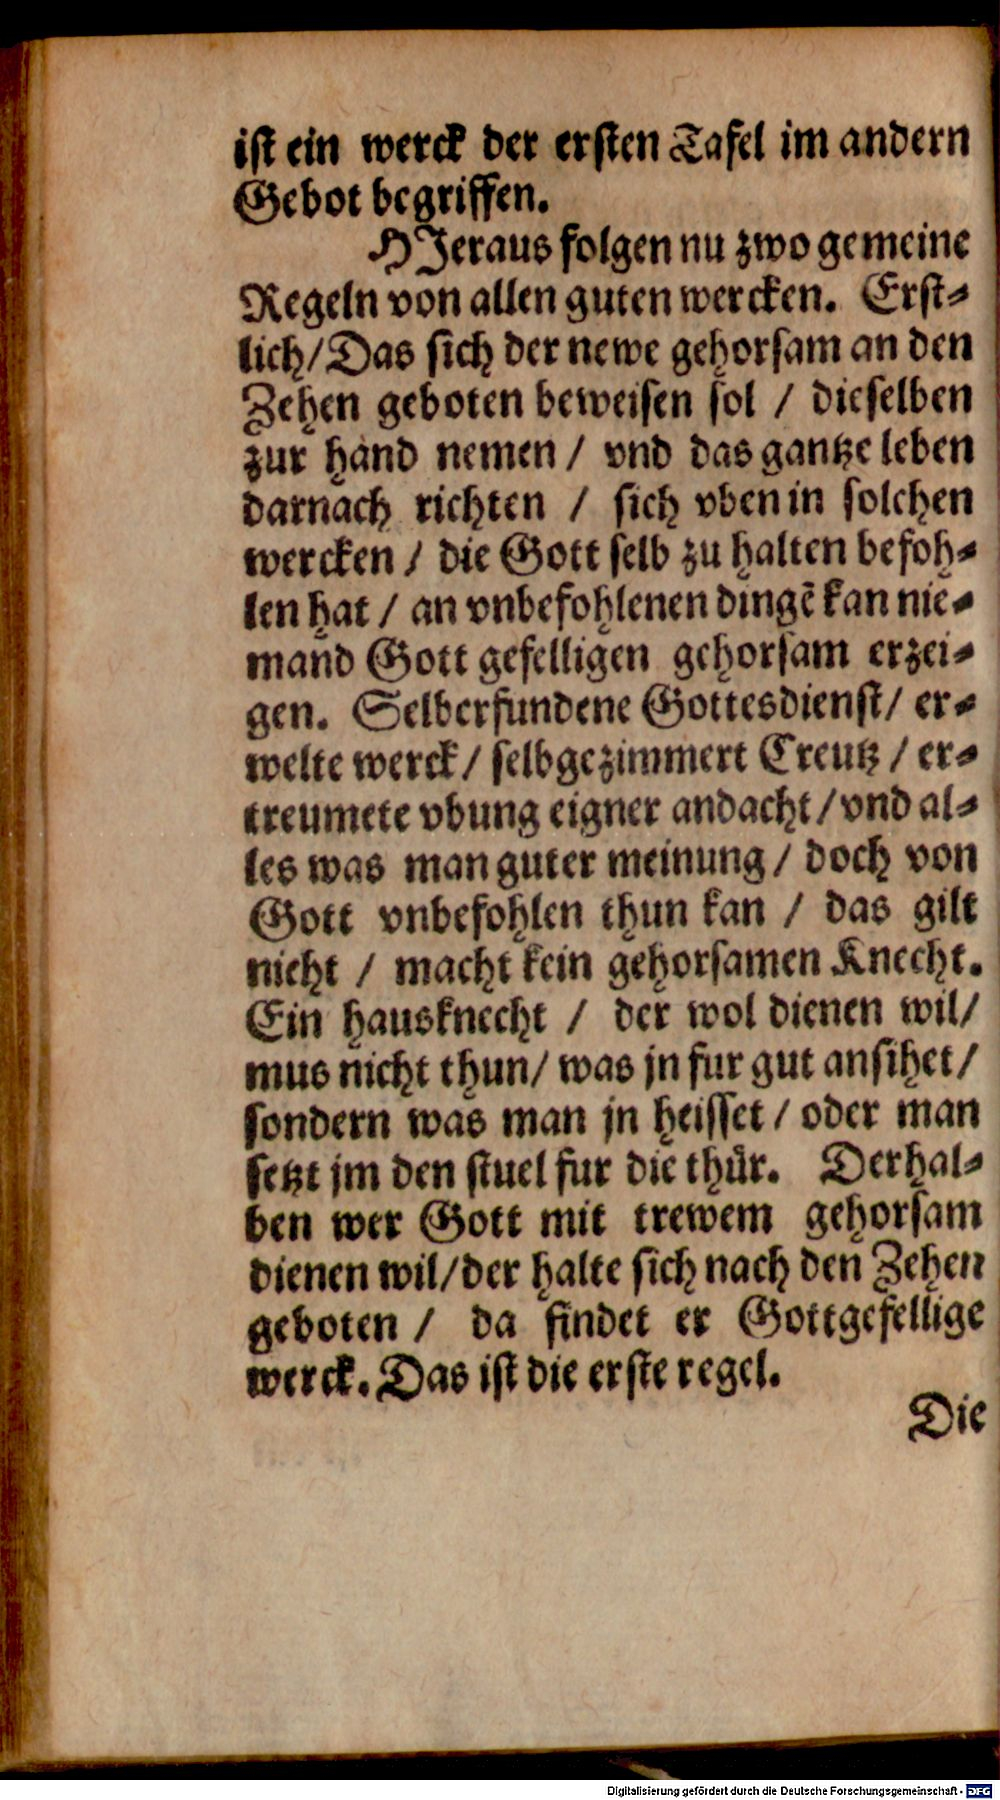 ist ein werck der ersten Tafel im andern
Gebot begriffen.
HJeraus folgen nu zwo gemeine
Regeln von allen guten wercken. Erst⸗
lich/Das sich der newe gehorsam an den
Zehen geboten beweisen sol / dieselben
zur hand nemen / vnd das gantze leben
darnach richten / sich vben in solchen
wercken / die Gott selb zu halten befoh⸗
len hat / an vnbefohlenen dingẽ kan nie⸗
mand Gott gefelligen gehorsam erzei⸗
gen. Selberfundene Gottesdienst/ er⸗
welte werck / selbgezimmert Creutz / er⸗
treumete vbung eigner andacht / vnd al⸗
les was man guter meinung / doch von
Gott vnbefohlen thun kan / das gilt
nicht / macht kein gehorsamen Knecht.
Ein hausknecht / der wol dienen wil/
mus nicht thun/ was jn fur gut ansihet/
sondern was man jn heisset / oder man
setzt jm den stuel fur die thür. Derhal⸗
ben wer Gott mit trewem gehorsam
dienen wil/der halte sich nach den Zehen
geboten / da findet er Gottgefellige
werck. Das ist die erste regel.
Die
Digitalisierung gefördert durch die Deutsche Forschungsgemeinschaft - DFG